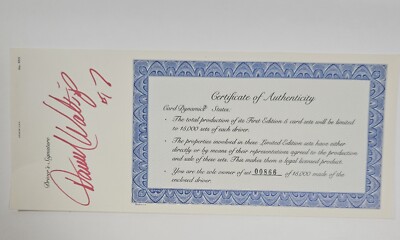 Driver's Signature
Darrell Waltrip
17
Certificate of Authenticity
Card Dynamics States:
• The total production of its First Edition 6 card sets will be limited
to 15,000 sets of each driver.
• The properties involved in these Limited Edition sets have either
directly or by means of their representatives agreed to the production
and sale of these sets. This makes them a legal licensed product.
• You are the sole owner of set 00866 of 15,000 made of the
enclosed driver.